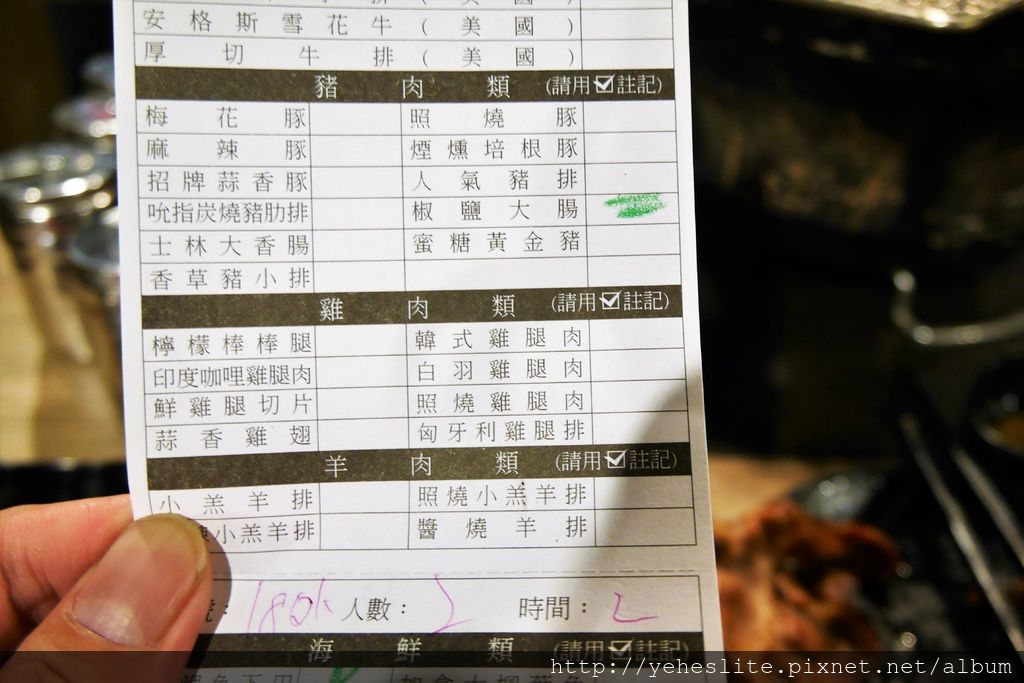 安格斯雪花牛(美國)
厚切牛排(美國)
豬肉類 (請用☑註記)
梅花豚 照燒豚
麻辣豚 煙燻培根豚
招牌蒜香豚 人氣豬排
吮指炭燒豬肋排 椒鹽大腸
士林大香腸 蜜糖黃金豬
香草豬小排
雞肉類 (請用☑註記)
檸檬棒棒腿 韓式雞腿肉
印度咖哩雞腿肉 白羽雞腿肉
鮮雞腿切片 照燒雞腿肉
蒜香雞翅 匈牙利雞腿排
羊肉類 (請用☑註記)
小羔羊排 照燒小羔羊排
小羔羊排 醬燒羊排
人數: 2 時間: 2
海鮮類 (請用☑註記)
http://yeheslite.pixnet.net/album